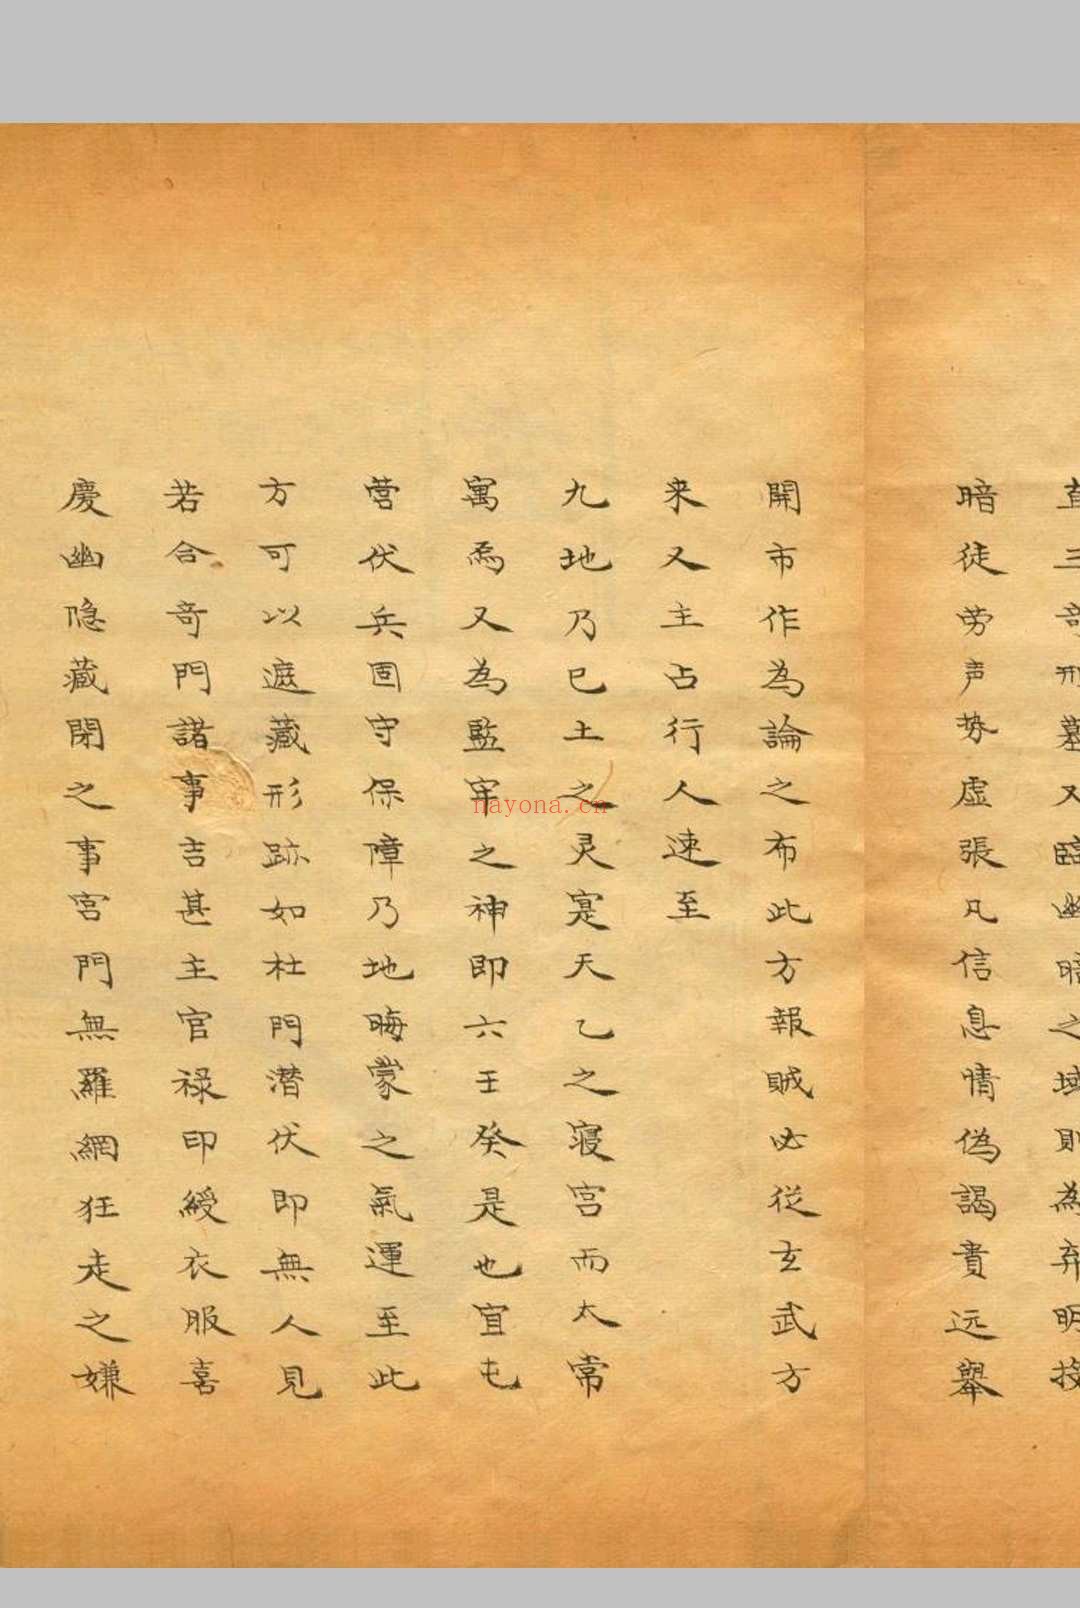 直三奇刑墓又臨幽暗之域則為弃明投
暗徒劳声势虚張凡信息情偽謁貴远舉
開市作為論之布此方報賊必從玄武方
来又主占行人速至
九地乃已土之灵寔天乙之寝宫而太常
寓焉又為監牢之神即六壬癸是也宜屯
营伏兵固守保障乃地晦蒙之氣運至此
方可以遮藏形跡如杜門潜伏即無人見
若合奇門諸事吉甚主官禄印綬衣服喜
慶幽隐藏閉之事宫門無羅網狂走之嫌
nayona.cn